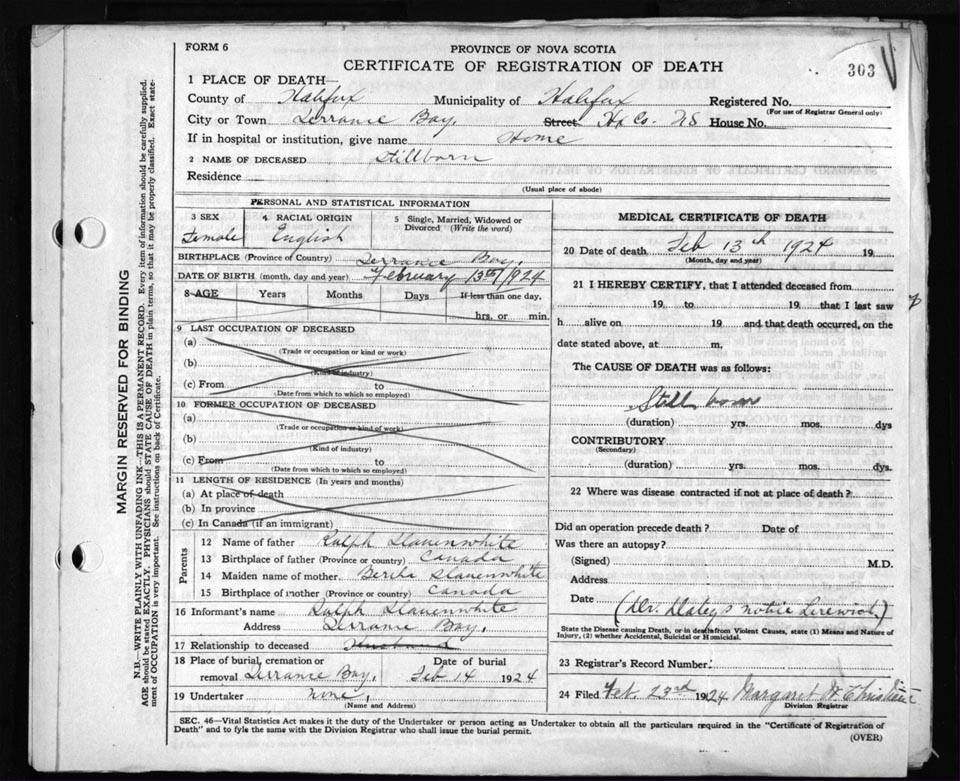 FORM 6
PROVINCE OF NOVA SCOTIA
CERTIFICATE OF REGISTRATION OF DEATH
303
1 PLACE OF DEATH—
County of Halifax Municipality of Halifax Registered No.
(For use of Registrar General only)
City or Town Terrance Bay. Street Hx Co. NS House No.
If in hospital or institution, give name Home
2 NAME OF DECEASED Stillborn
Residence
(Usual place of abode)
PERSONAL AND STATISTICAL INFORMATION
3 SEX 4 RACIAL ORIGIN 5 Single, Married, Widowed or Divorced (Write the word)
Female English
BIRTHPLACE (Province of Country) Terrance Bay.
DATE OF BIRTH (month, day and year) February 13th/1924
8 AGE Years Months Days If less than one day,
hrs. or min.
9 LAST OCCUPATION OF DECEASED
(a)
(Trade or occupation or kind or work)
(b)
(Kind of industry)
(c) From to
(Date from which to which so employed)
10 FORMER OCCUPATION OF DECEASED
(a)
(Trade or occupation or kind of work)
(b)
(Kind of industry)
(c) From to
(Date from which to which so employed)
11 LENGTH OF RESIDENCE (In years and months)
(a) At place of death
(b) In province
(c) In Canada (if an immigrant)
Parents
12 Name of father Ralph Slauenwhite
13 Birthplace of father (Province or country) Canada
14 Maiden name of mother Slauenwhite
15 Birthplace of mother (Province or country) Canada
16 Informant's name Ralph Slauenwhite
Address Terrance Bay.
17 Relationship to deceased Husband
18 Place of burial, cremation or removal Terrance Bay. Date of burial Feb 14 1924
19 Undertaker none.
(Name and Address)
MEDICAL CERTIFICATE OF DEATH
20 Date of death Feb 13th 1924 19
(Month, day and year)
21 I HEREBY CERTIFY, that I attended deceased from
19 to 19 that I last saw
h alive on 19 and that death occurred, on the
date stated above, at m,
The CAUSE OF DEATH was as follows:
Still born
(duration) yrs. mos. dys
CONTRIBUTORY
(Secondary)
(duration) yrs. mos. dys.
22 Where was disease contracted if not at place of death?
Did an operation precede death? Date of
Was there an autopsy?
(Signed) M.D.
Address
Date
(Dr.
State the Disease causing Death, or in deaths from Violent Causes, state (1) Means and Nature of
Injury, (2) whether Accidental, Suicidal or Homicidal.
23 Registrar's Record Number.
24 Filed Feb. 23rd 1924 Margaret Christian
Division Registrar
SEC. 46—Vital Statistics Act makes it the duty of the Undertaker or person acting as Undertaker to obtain all the particulars required in the "Certificate of Registration of
Death" and to fyle the same with the Division Registrar who shall issue the burial permit.
(OVER)
MARGIN RESERVED FOR BINDING
N.B.—WRITE PLAINLY WITH UNFADING INK—THIS IS A PERMANENT RECORD. Every item of information should be carefully supplied.
AGE should be stated EXACTLY. PHYSICIANS should STATE CAUSE OF DEATH in plain terms, so that it may be properly classified. Exact state-
ment of OCCUPATION is very important. See instructions on back of Certificate.